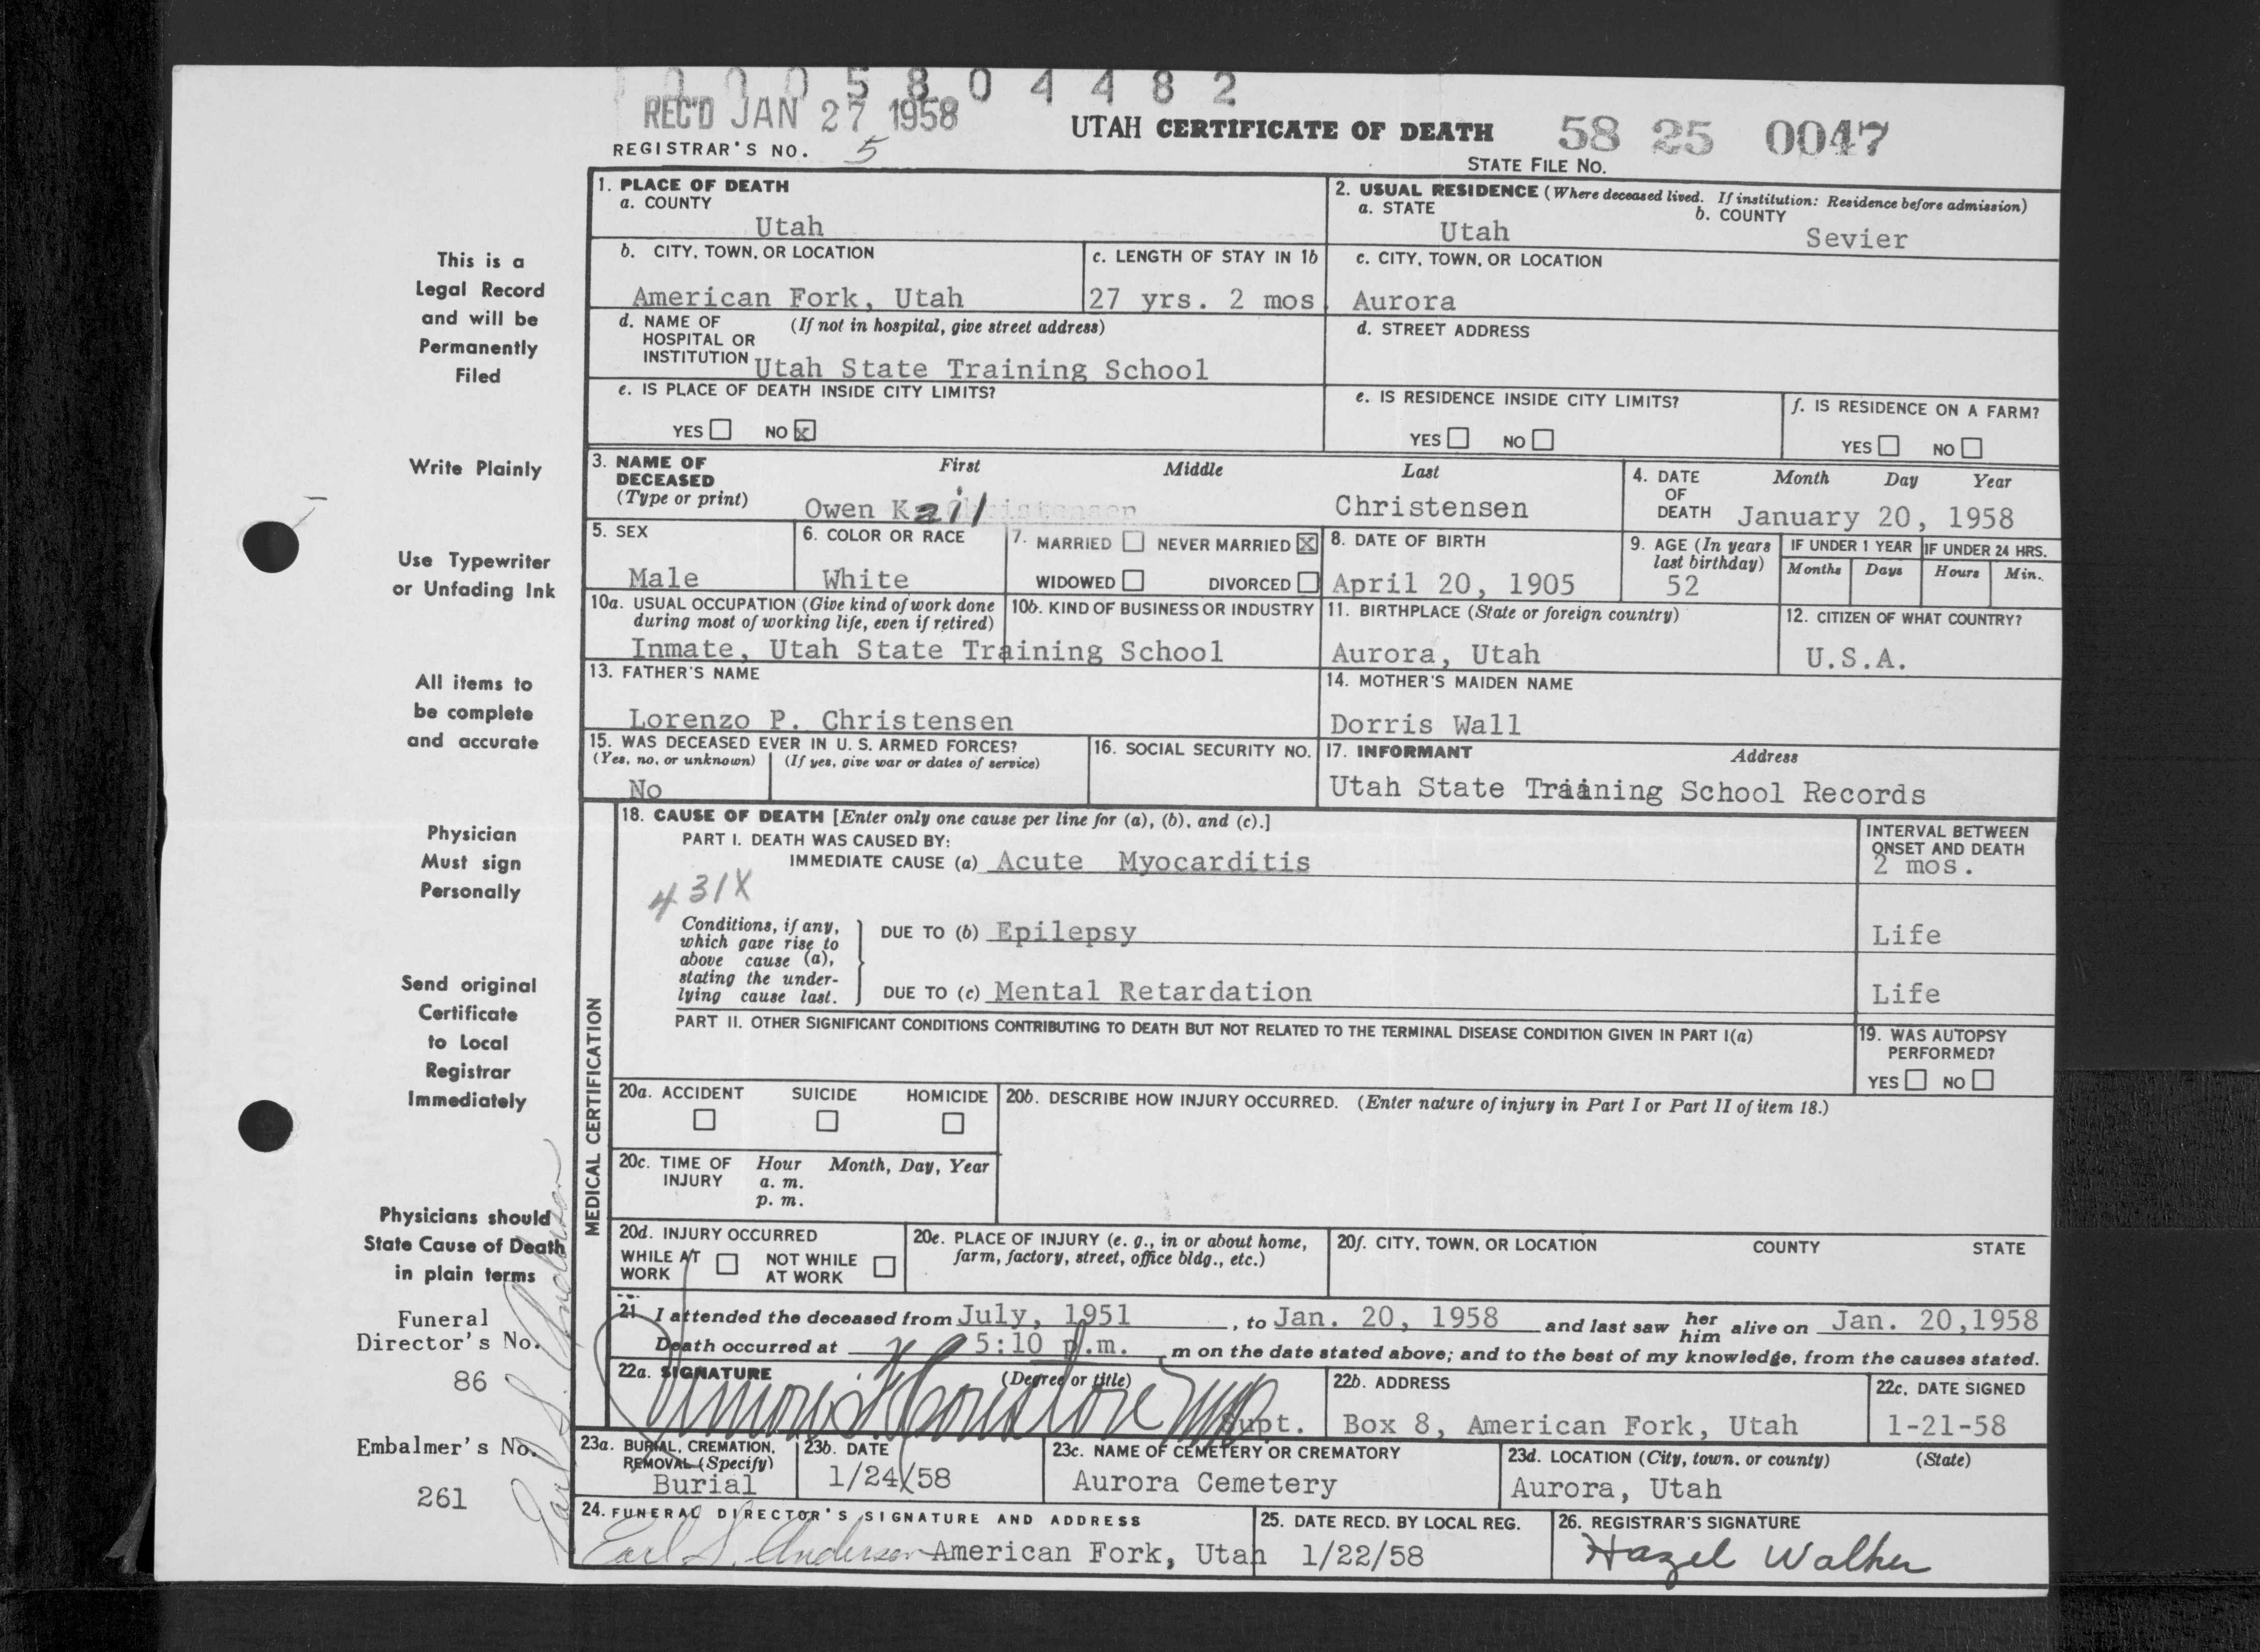 0005804482
REC'D JAN 27 1958
UTAH CERTIFICATE OF DEATH
58 25 0047
REGISTRAR'S NO. 5
STATE FILE NO.
1. PLACE OF DEATH
a. COUNTY
Utah
2. USUAL RESIDENCE (Where deceased lived. If institution: Residence before admission)
a. STATE
Utah
b. COUNTY
Sevier
b. CITY, TOWN, OR LOCATION
American Fork, Utah
c. LENGTH OF STAY IN 1b
27 yrs. 2 mos.
c. CITY, TOWN, OR LOCATION
Aurora
d. NAME OF (If not in hospital, give street address)
HOSPITAL OR
INSTITUTION Utah State Training School
d. STREET ADDRESS
e. IS PLACE OF DEATH INSIDE CITY LIMITS?
YES NO x
e. IS RESIDENCE INSIDE CITY LIMITS?
YES NO
f. IS RESIDENCE ON A FARM?
YES NO
3. NAME OF DECEASED
(Type or print)
First Middle Last
Owen Kail Christensen
4. DATE OF DEATH
Month Day Year
January 20, 1958
5. SEX
Male
6. COLOR OR RACE
White
7. MARRIED NEVER MARRIED X
WIDOWED DIVORCED
8. DATE OF BIRTH
April 20, 1905
9. AGE (In years last birthday)
52
IF UNDER 1 YEAR
Months Days
IF UNDER 24 HRS.
Hours Min.
10a. USUAL OCCUPATION (Give kind of work done
during most of working life, even if retired)
10b. KIND OF BUSINESS OR INDUSTRY
Inmate, Utah State Training School
11. BIRTHPLACE (State or foreign country)
Aurora, Utah
12. CITIZEN OF WHAT COUNTRY?
U.S.A.
13. FATHER'S NAME
Lorenzo P. Christensen
14. MOTHER'S MAIDEN NAME
Dorris Wall
15. WAS DECEASED EVER IN U. S. ARMED FORCES?
(Yes, no, or unknown) (If yes, give war or dates of service)
No
16. SOCIAL SECURITY NO.
17. INFORMANT Address
Utah State Training School Records
MEDICAL CERTIFICATION
18. CAUSE OF DEATH [Enter only one cause per line for (a), (b), and (c).]
PART I. DEATH WAS CAUSED BY:
IMMEDIATE CAUSE (a) Acute Myocarditis
INTERVAL BETWEEN
ONSET AND DEATH
2 mos.
431X
Conditions, if any,
which gave rise to
above cause (a),
stating the under-
lying cause last.
DUE TO (b) Epilepsy
Life
DUE TO (c) Mental Retardation
Life
PART II. OTHER SIGNIFICANT CONDITIONS CONTRIBUTING TO DEATH BUT NOT RELATED TO THE TERMINAL DISEASE CONDITION GIVEN IN PART I(a)
19. WAS AUTOPSY
PERFORMED?
YES NO
20a. ACCIDENT SUICIDE HOMICIDE
20b. DESCRIBE HOW INJURY OCCURRED. (Enter nature of injury in Part I or Part II of item 18.)
20c. TIME OF INJURY
Hour Month, Day, Year
a. m.
p. m.
20d. INJURY OCCURRED
WHILE AT WORK
NOT WHILE AT WORK
20e. PLACE OF INJURY (e. g., in or about home,
farm, factory, street, office bldg., etc.)
20f. CITY, TOWN, OR LOCATION COUNTY STATE
21. I attended the deceased from July, 1951, to Jan. 20, 1958 and last saw her him alive on Jan. 20,1958
Death occurred at 5:10 p.m. m on the date stated above; and to the best of my knowledge, from the causes stated.
22a. SIGNATURE (Degree or title)
Supt.
22b. ADDRESS
Box 8, American Fork, Utah
22c. DATE SIGNED
1-21-58
23a. BURIAL, CREMATION,
REMOVAL (Specify)
Burial
23b. DATE
1/24/58
23c. NAME OF CEMETERY OR CREMATORY
Aurora Cemetery
23d. LOCATION (City, town, or county) (State)
Aurora, Utah
24. FUNERAL DIRECTOR'S SIGNATURE AND ADDRESS
Earl S. Anderson American Fork, Utah
25. DATE RECD. BY LOCAL REG.
1/22/58
26. REGISTRAR'S SIGNATURE
Hazel Walker
This is a
Legal Record
and will be
Permanently
Filed
Write Plainly
Use Typewriter
or Unfading Ink
All items to
be complete
and accurate
Physician
Must sign
Personally
Send original
Certificate
to Local
Registrar
Immediately
Physicians should
State Cause of Death
in plain terms
Funeral
Director's No.
86
Embalmer's No.
261
Earl S. Anderson